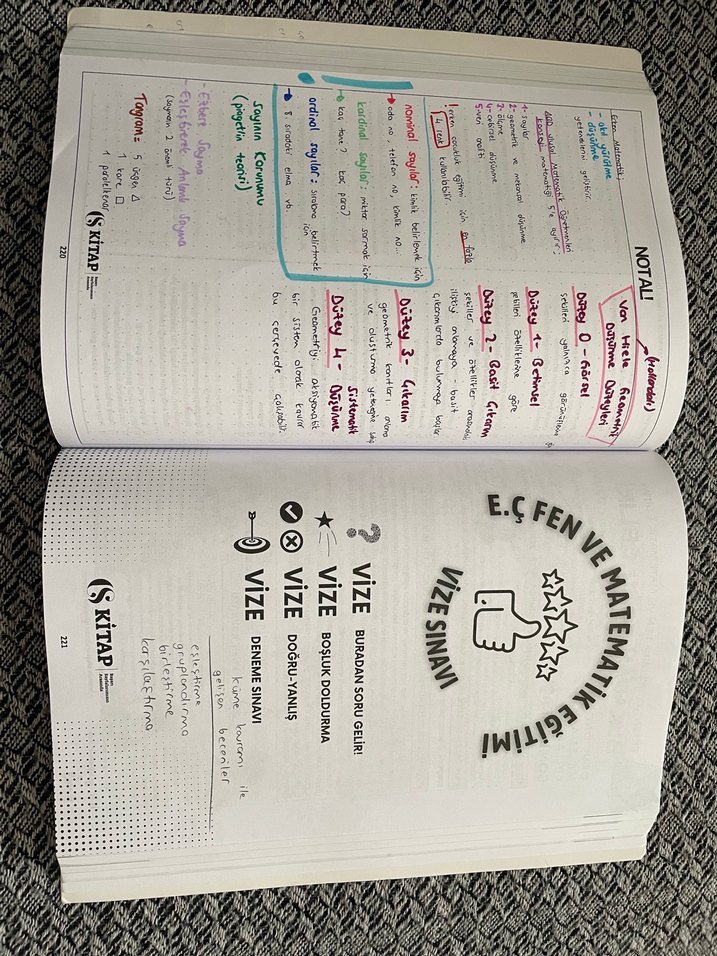 NOT AL!
Erken Matematik;
- akıl yürütme
- düşünme
yeteneklerini geliştirir.
ABD ulusal Matematik Öğretmenleri
Konseyi matematiği 5'e ayırır;
1- sayılar
2- geometrik ve mekansal düşünme
3- ölçme
4- cebirsel düşünme
5- veri analizi
! erken çocukluk eğitimi için en fazla
4 renk kullanılabilir.
nominal sayılar: kimlik belirlemek için
→ oda no, telefon no, kimlik no...
kardinal sayılar: miktar sormak için
→ kaç tane? kaç para?
ordinal sayılar: sıralama belirtmek için
→ 8. sıradaki elma vb.
Sayının Korunumu
(piagetin teorisi)
- Ezbere Sayma
- Eşleştirerek Anlamlı Sayma
(saymanın 2 önemli türü)
Tangram = 5 üçgen △
1 kare □
1 paralelkenar
(Hollandalı)
Van Hiele Geometrik
Düşünme Düzeyleri
Düzey 0 - Görsel
şekilleri yalnızca görünüşüne
Düzey 1 - Betimsel
şekilleri özelliklerine göre
Düzey 2 - Basit Çıkarım
şekiller ve özellikler arasındaki
ilişkiyi anlamaya - basit
çıkarımlarda bulunmaya başlar
Düzey 3 - Çıkarım
geometrik kanıtları anlama
ve oluşturma yeteneğine sahip
Düzey 4 - Sistematik Düşünme
Geometriyi aksiyomatik
bir sistem olarak kavrar
bu çerçevede çalışabilir.
KİTAP
220
E.Ç FEN VE MATEMATİK EĞİTİMİ
VİZE SINAVI
VİZE BURADAN SORU GELİR!
VİZE BOŞLUK DOLDURMA
VİZE DOĞRU-YANLIŞ
VİZE DENEME SINAVI
küme kavramı ile
gelişen beceriler
eşleştirme
gruplandırma
birleştirme
karşılaştırma
KİTAP
221